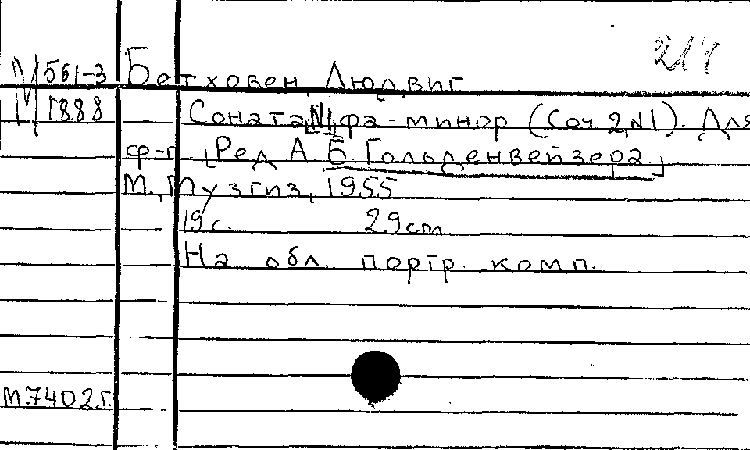 214
М 561-3 Бетховен Людвиг
1888 Соната №1 фа-минор (Соч. 2, №1). Для
ф-п [Ред А Б Гольденвейзера]
М., Музгиз, 1955
19 с. 29 cm
На обл портр. комп.
М.7402г.